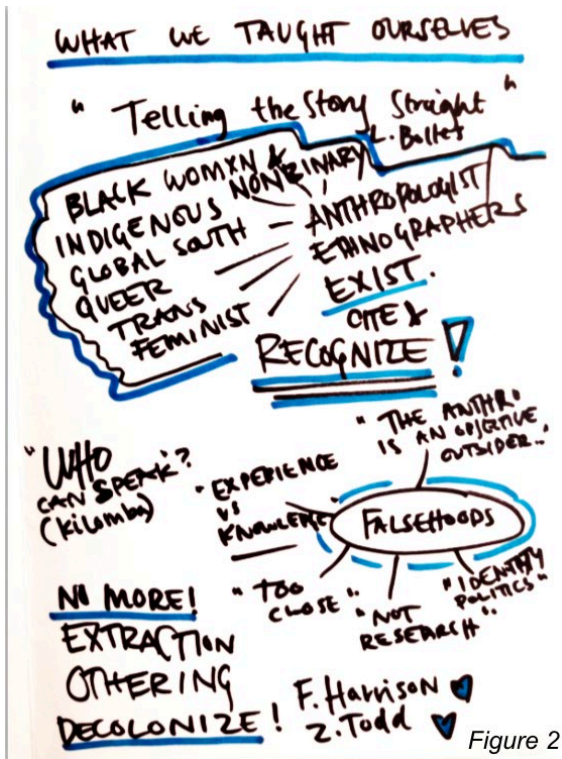 WHAT WE TAUGHT OURSELVES
"Telling the Story Straight"
L. Bolles
BLACK WOMXN &
NONBINARY
INDIGENOUS
GLOBAL SOUTH
QUEER
TRANS
FEMINIST
ANTHROPOLOGIST
ETHNOGRAPHERS
EXIST.
CITE &
RECOGNIZE!
"WHO
CAN SPEAK"?
(Kilomba)
"THE ANTHRO
IS AN OBJECTIVE
OUTSIDER."
"EXPERIENCE
VS
KNOWLEDGE"
FALSEHOODS
"TOO
CLOSE"
"NOT
RESEARCH"
"IDENTITY
POLITICS"
NO MORE!
EXTRACTION
OTHERING
DECOLONIZE!
F. Harrison
Z. Todd
Figure 2